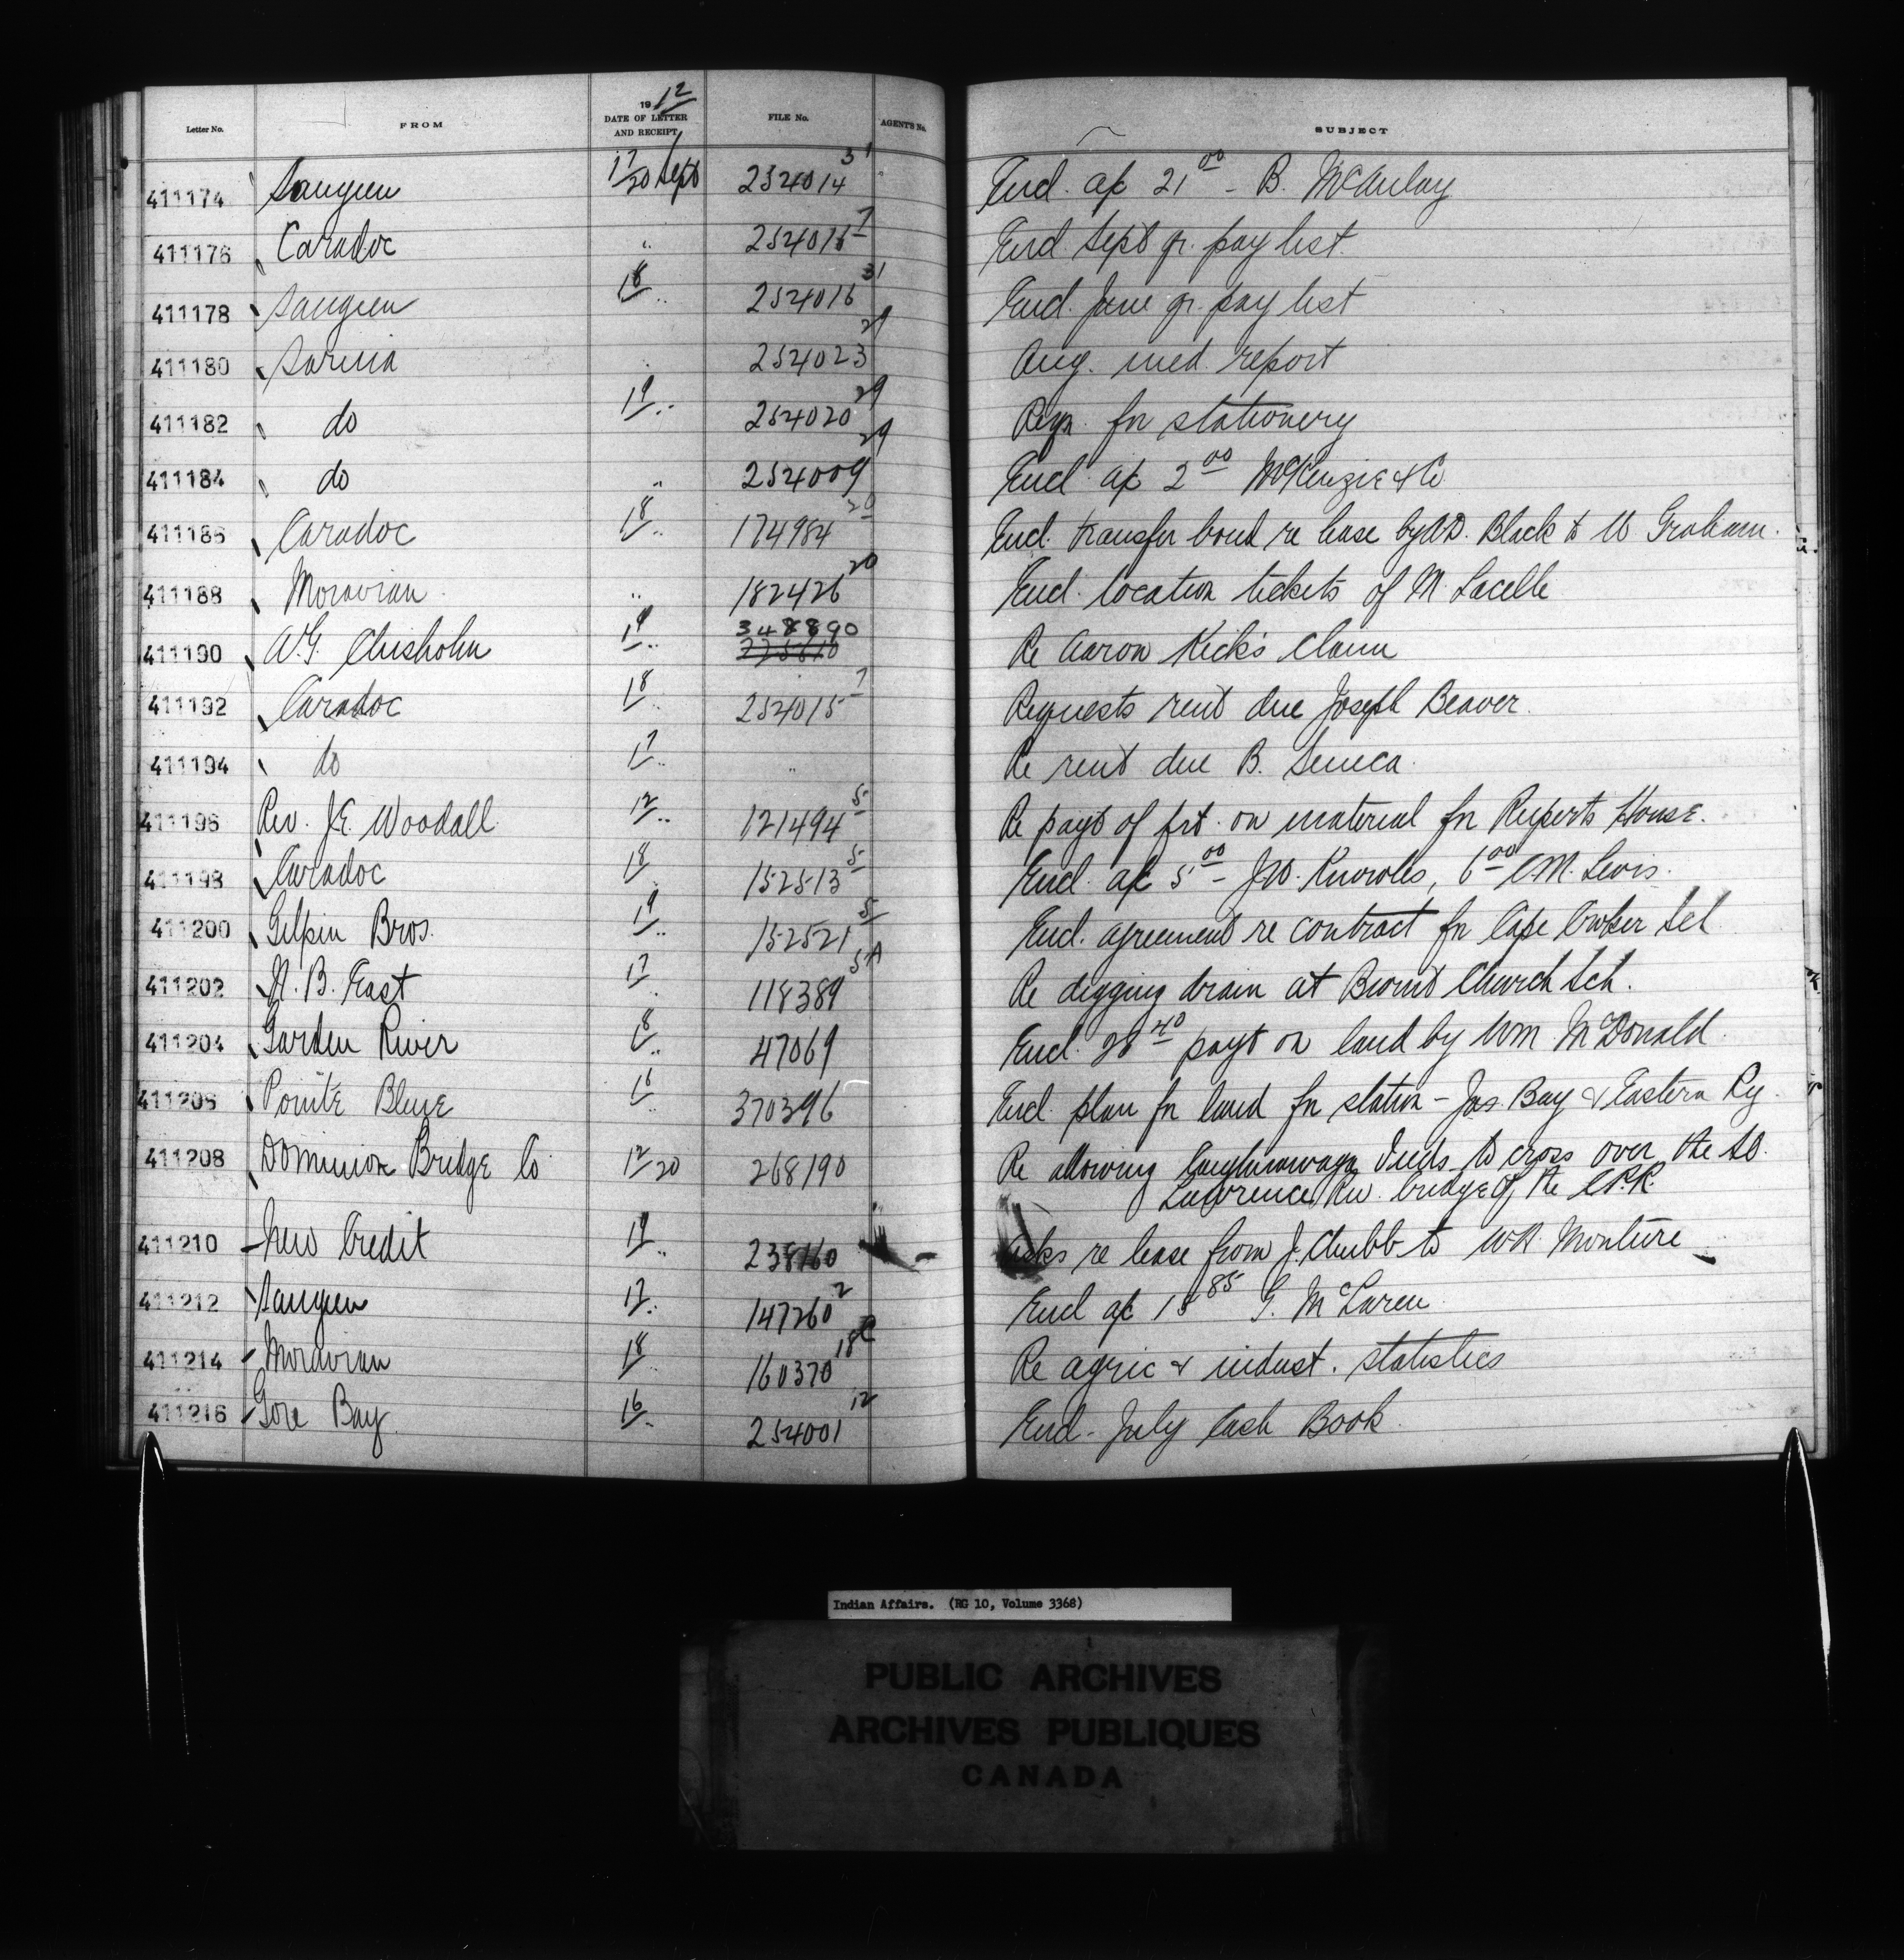 Letter No. FROM 1912 DATE OF LETTER AND RECEIPT FILE No. AGENT'S No. SUBJECT
411174 Saugeen 17/20 Sept 254014 31 Encl. a/c 21 00 - B. McAulay
411176 Caradoc " 254015 7 Encl. Sept qr. pay list.
411178 Saugeen 18 " 254016 31 Encl. June qr. pay list
411180 Sarnia " 254023 29 Aug. med. report
411182 do 19 " 254020 29 Reqn. for stationery
411184 do " 254009 29 Encl. a/c 2 00 McKenzie & Co
411186 Caradoc 18 " 174984 20 Encl. transfer bond re lease by Black to Graham.
411188 Moravian " 182426 20 Encl. location tickets of M. Lacelle
411190 A.G. Chisholm 19 " 348890 Re Aaron Kick's claim
411192 Caradoc 18 " 254015 7 Requests rent due Joseph Beaver.
411194 do 17 " " Re rent due B. Seneca.
411196 Rev. J.E. Woodall 12 " 121494 5 Re payt of frt. on material for Ruperts House.
411198 Caradoc 18 " 152513 5 Encl. a/c 5 00 - J.W. Knowles, 6 00 C.M. Lewis.
411200 Gilpin Bros. 19 " 152521 5 Encl. agreement re contract for Cape Croker Sch
411202 B. East 17 " 118389 5A Re digging drain at Church Sch.
411204 Garden River 18 " 47069 Encl. 28 40 payt on land by Wm McDonald.
411206 Pointe Bleue 16 " 370396 Encl. plan for land for station - Jas. Bay & Eastern Ry.
411208 Dominion Bridge Co 12/20 268190 Re allowing Caughnawaga Inds. to cross over the St.
Lawrence Riv. bridge of the C.P.R.
411210 New Credit 19 " 238160 Asks re lease from J. Chubb to Monture
411212 Saugeen 17 " 147260 2 Encl a/c 18 85 G. McLaren
411214 Moravian 18 " 160370 18C Re agric & indust. statistics
411216 Gore Bay 16 " 254001 12 Encl. July Cash Book.
Indian Affairs. (RG 10, Volume 3368)
PUBLIC ARCHIVES
ARCHIVES PUBLIQUES
CANADA